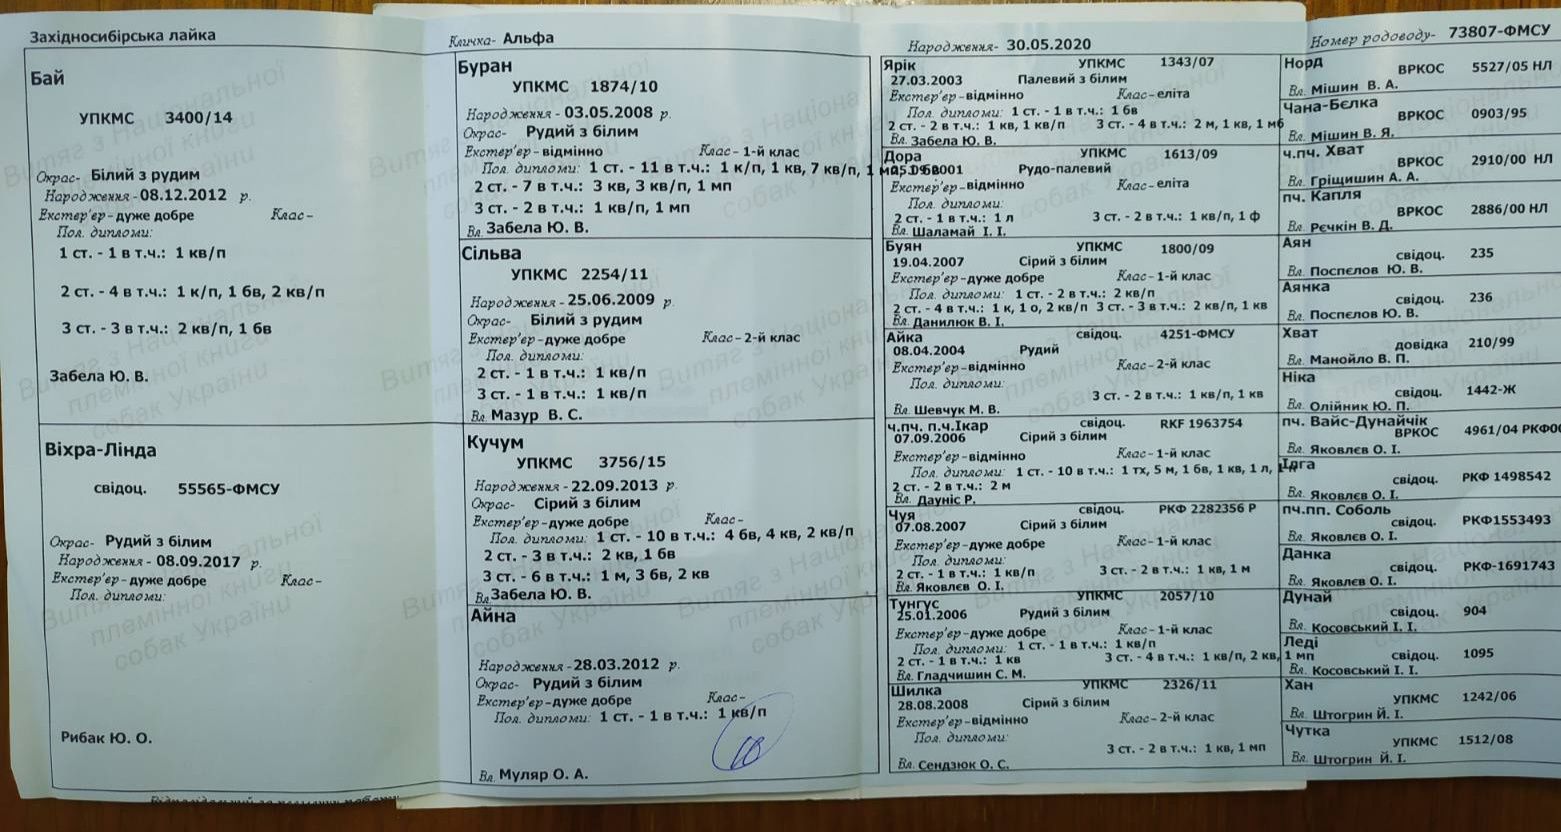 Західносибірська лайка
Кличка- Альфа
Народження- 30.05.2020
Номер родоводу- 73807-ФМСУ
Бай
УПКМС 3400/14
Окрас- Білий з рудим
Народження - 08.12.2012 р.
Екстер'ер - дуже добре Клас -
Пол. дипломи:
1 ст. - 1 в т.ч.: 1 кв/п
2 ст. - 4 в т.ч.: 1 к/п, 1 бв, 2 кв/п
3 ст. - 3 в т.ч.: 2 кв/п, 1 бв
Забела Ю. В.
Віхра-Лінда
свідоц. 55565-ФМСУ
Окрас- Рудий з білим
Народження - 08.09.2017 р.
Екстер'ер - дуже добре Клас -
Пол. дипломи:
Рибак Ю. О.
Буран
УПКМС 1874/10
Народження - 03.05.2008 р.
Окрас- Рудий з білим
Екстер'ер - відмінно Клас - 1-й клас
Пол. дипломи: 1 ст. - 11 в т.ч.: 1 к/п, 1 кв, 7 кв/п, 1 мп, 1 бв
2 ст. - 7 в т.ч.: 3 кв, 3 кв/п, 1 мп
3 ст. - 2 в т.ч.: 1 кв/п, 1 мп
Вл. Забела Ю. В.
Сільва
УПКМС 2254/11
Народження - 25.06.2009 р.
Окрас- Білий з рудим
Екстер'ер - дуже добре Клас - 2-й клас
Пол. дипломи:
2 ст. - 1 в т.ч.: 1 кв/п
3 ст. - 1 в т.ч.: 1 кв/п
Вл. Мазур В. С.
Кучум
УПКМС 3756/15
Народження - 22.09.2013 р.
Окрас- Сірий з білим
Екстер'ер - дуже добре Клас -
Пол. дипломи: 1 ст. - 10 в т.ч.: 4 бв, 4 кв, 2 кв/п
2 ст. - 3 в т.ч.: 2 кв, 1 бв
3 ст. - 6 в т.ч.: 1 м, 3 бв, 2 кв
Вл. Забела Ю. В.
Айна
Народження - 28.03.2012 р.
Окрас- Рудий з білим
Екстер'ер - дуже добре Клас -
Пол. дипломи: 1 ст. - 1 в т.ч.: 1 кв/п
Вл. Муляр О. А.
Ярік УПКМС 1343/07
27.03.2003 Палевий з білим
Екстер'ер - відмінно Клас - еліта
Пол. дипломи: 1 ст. - 1 в т.ч.: 1 бв
2 ст. - 2 в т.ч.: 1 кв, 1 кв/п 3 ст. - 4 в т.ч.: 2 м, 1 кв, 1 мб
Вл. Забела Ю. В.
Дора УПКМС 1613/09
25.09.2001 Рудо-палевий
Екстер'ер - відмінно Клас - еліта
Пол. дипломи:
2 ст. - 1 в т.ч.: 1 л 3 ст. - 2 в т.ч.: 1 кв/п, 1 ф
Вл. Шаламай І. І.
Буян УПКМС 1800/09
19.04.2007 Сірий з білим
Екстер'ер - дуже добре Клас - 1-й клас
Пол. дипломи: 1 ст. - 2 в т.ч.: 2 кв/п
2 ст. - 4 в т.ч.: 1 к, 1 о, 2 кв/п 3 ст. - 3 в т.ч.: 2 кв/п, 1 кв
Вл. Данилюк В. І.
Айка свідоц. 4251-ФМСУ
08.04.2004 Рудий
Екстер'ер - відмінно Клас - 2-й клас
Пол. дипломи:
3 ст. - 2 в т.ч.: 1 кв/п, 1 кв
Вл. Шевчук М. В.
ч.пч. п.ч.Ікар свідоц. RKF 1963754
07.09.2006 Сірий з білим
Екстер'ер - відмінно Клас - 1-й клас
Пол. дипломи: 1 ст. - 10 в т.ч.: 1 тх, 5 м, 1 бв, 1 кв, 1 л,
2 ст. - 2 в т.ч.: 2 м
Вл. Дауніс Р.
Чуя свідоц. РКФ 2282356 Р
07.08.2007 Сірий з білим
Екстер'ер - дуже добре Клас - 1-й клас
Пол. дипломи:
2 ст. - 1 в т.ч.: 1 кв/п 3 ст. - 2 в т.ч.: 1 кв, 1 м
Вл. Яковлєв О. І.
Тунгус УПКМС 2057/10
25.01.2006 Рудий з білим
Екстер'ер - дуже добре Клас - 1-й клас
Пол. дипломи: 1 ст. - 1 в т.ч.: 1 кв/п
2 ст. - 1 в т.ч.: 1 кв 3 ст. - 4 в т.ч.: 1 кв/п, 2 кв, 1 мп
Вл. Гладчишин С. М.
Шилка УПКМС 2326/11
28.08.2008 Сірий з білим
Екстер'ер - відмінно Клас - 2-й клас
Пол. дипломи:
3 ст. - 2 в т.ч.: 1 кв, 1 мп
Вл. Сендзюк О. С.
Норд
ВРКОС 5527/05 НЛ
Вл. Мішин В. А.
Чана-Бєлка
ВРКОС 0903/95
Вл. Мішин В. Я.
ч.пч. Хват
ВРКОС 2910/00 НЛ
Вл. Гріщишин А. А.
пч. Капля
ВРКОС 2886/00 НЛ
Вл. Рєчкін В. Д.
Аян
свідоц. 235
Вл. Поспєлов Ю. В.
Аянка
свідоц. 236
Вл. Поспєлов Ю. В.
Хват
довідка 210/99
Вл. Манойло В. П.
Ніка
свідоц. 1442-Ж
Вл. Олійник Ю. П.
пч. Вайс-Дунайчік
ВРКОС 4961/04 РКФ00
Вл. Яковлєв О. І.
Ілга
свідоц. РКФ 1498542
Вл. Яковлєв О. І.
пч.пп. Соболь
свідоц. РКФ1553493
Вл. Яковлєв О. І.
Данка
свідоц. РКФ-1691743
Вл. Яковлєв О. І.
Дунай
свідоц. 904
Вл. Косовський І. І.
Леді
свідоц. 1095
Вл. Косовський І. І.
Хан
УПКМС 1242/06
Вл. Штогрин Й. І.
Чутка
УПКМС 1512/08
Вл. Штогрин Й. І.
Витяг з Національної племінної книги собак України